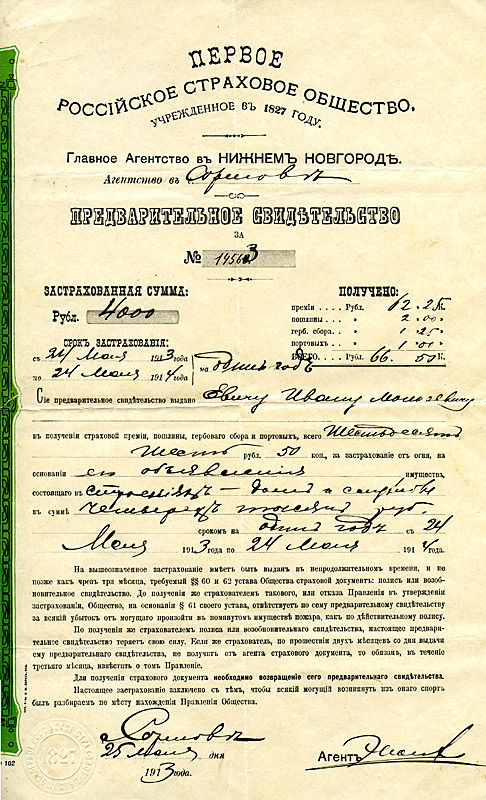 ПЕРВОЕ
РОССІЙСКОЕ СТРАХОВОЕ ОБЩЕСТВО.
УЧРЕЖДЕННОЕ ВЪ 1827 ГОДУ.
Главное Агентство въ НИЖНЕМЪ НОВГОРОДѢ.
Агентство въ с. Сормовѣ
ПРЕДВАРИТЕЛЬНОЕ СВИДѢТЕЛЬСТВО
ЗА
№
ЗАСТРАХОВАННАЯ СУММА:
Рубл. 4000
СРОКЪ ЗАСТРАХОВАНІЯ:
съ 24 Мая 1913 года
по 24 Мая 1914 года
на одинъ годъ
ПОЛУЧЕНО:
преміи . . . . Рубл. 62. 25 К.
пошлины . . " 2. 00 "
герб. сбора . . " 1. 25 "
портовыхъ . " 1. 00 "
ВСЕГО . . Рубл. 66. 50 К.
Сіе предварительное свидѣтельство выдано Ивану
въ полученіи страховой преміи, пошлины, гербоваго сбора и портовыхъ, всего Шестьдесятъ
Шесть рубл. 50 коп., за застрахованіе отъ огня, на
основаніи его объявленія имущества,
состоящаго въ строеніяхъ – домѣ и службѣ
въ суммѣ четырехъ тысячъ руб.
срокомъ на одинъ годъ съ 24
Мая 1913 года по 24 Мая 1914 года.
На вышеозначенное застрахованіе имѣетъ быть выданъ въ непродолжительномъ времени, и не
позже какъ чрезъ три мѣсяца, требуемый §§ 60 и 62 устава Общества страховой документъ: полисъ или возоб-
новительное свидѣтельство. До полученія же страхователемъ таковаго, или отказа Правленія въ утвержденіи
застрахованія, Общество, на основаніи § 61 своего устава, отвѣтствуетъ по сему предварительному свидѣтельству
за всякій убытокъ отъ могущаго произойти въ помянутомъ имуществѣ пожара, какъ по дѣйствительному полису.
По полученіи же страхователемъ полиса или возобновительнаго свидѣтельства, настоящее предвари-
тельное свидѣтельство теряетъ свою силу. Если же страхователь, по прошествіи двухъ мѣсяцевъ со дня выдачи
ему предварительнаго свидѣтельства, не получитъ отъ агента страхового документа, то обязанъ, въ теченіе
третьяго мѣсяца, извѣстить о томъ Правленіе.
Для полученія страхового документа необходимо возвращеніе сего предварительнаго свидѣтельства.
Настоящее застрахованіе заключено съ тѣмъ, чтобы всякій могущій возникнуть изъ онаго споръ
былъ разбираемъ по мѣсту нахожденія Правленія Общества.
с. Сормово
25 Мая дня
1913 года.
Агентъ
1827
102